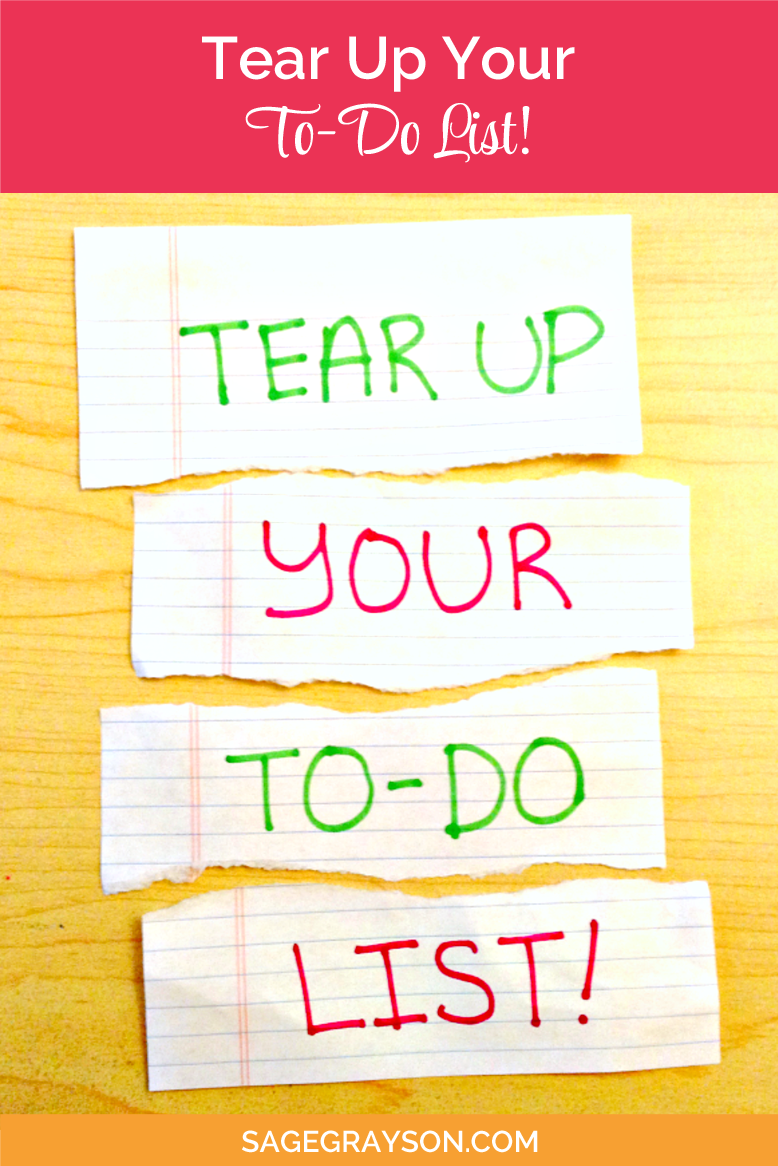 Tear Up Your
To-Do List!
TEAR UP
YOUR
TO-DO
LIST!
SAGEGRAYSON.COM